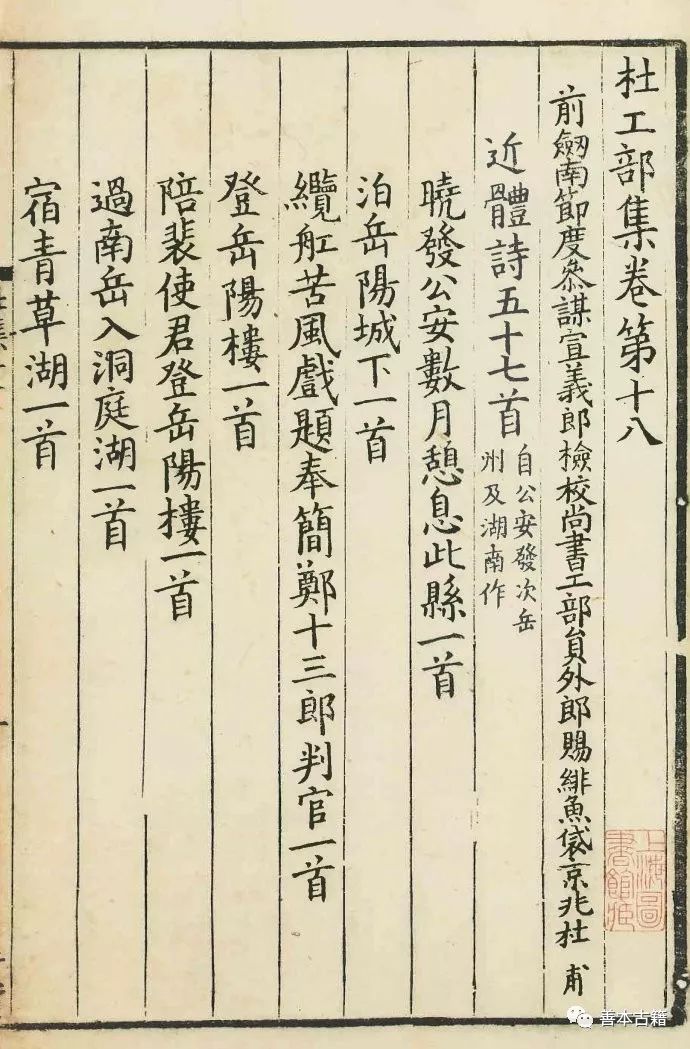 杜工部集卷第十八
前劒南節度叅謀宣義郎檢校尚書工部員外郎賜緋魚袋京兆杜甫
近體詩五十七首
自公安發次岳
州及湖南作
曉發公安數月憩息此縣一首
泊岳陽城下一首
纜舡苦風戲題奉簡鄭十三郎判官一首
登岳陽樓一首
陪裴使君登岳陽樓一首
過南岳入洞庭湖一首
宿青草湖一首
上海圖
書館藏
善本古籍